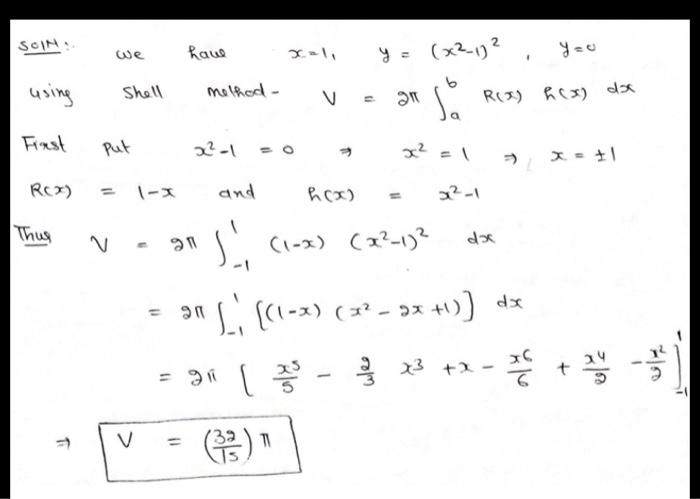 Soln:. we have x=1, y = (x²-1)², y=0
using Shell method- V = 2π ∫ₐᵇ R(x) h(x) dx
First Put x²-1 = 0 ⇒ x² = 1 ⇒ x = ±1
R(x) = 1-x and h(x) = x²-1
Thus V = 2π ∫₋₁¹ (1-x) (x²-1)² dx
= 2π ∫₋₁¹ [(1-x) (x²-2x+1)] dx
= 2π [ x⁵/5 - 2/3 x³ + x - x⁶/6 + x⁴/2 - x²/2 ]₋₁¹
⇒ V = (32/15) π